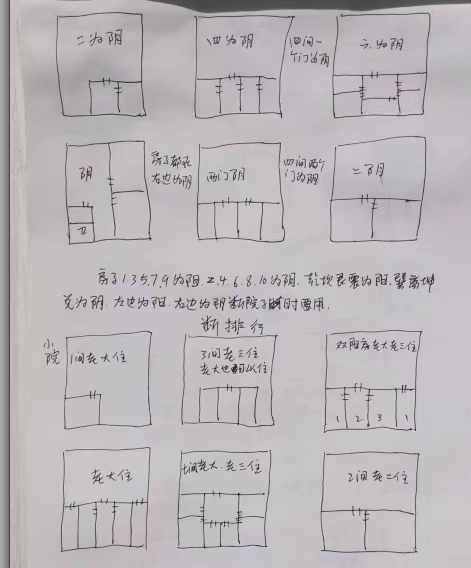 二为阴
四为阴
四间一个门为阴
六为阴
阴
卫
房子都在右边为阴
两门阴
四间两个门为阴
二阴
房子1.3.5.7.9为阳.2.4.6.8.10为阴.乾坎艮震为阳.巽离坤
兑为阴.左边为阳.右边为阴断院子时要用.
断排行
小院
1间老大住
3间老三住
老大也可以住
双阳房老大老三住
1 2 3 1
老大住
老大.老三住
2间老二住